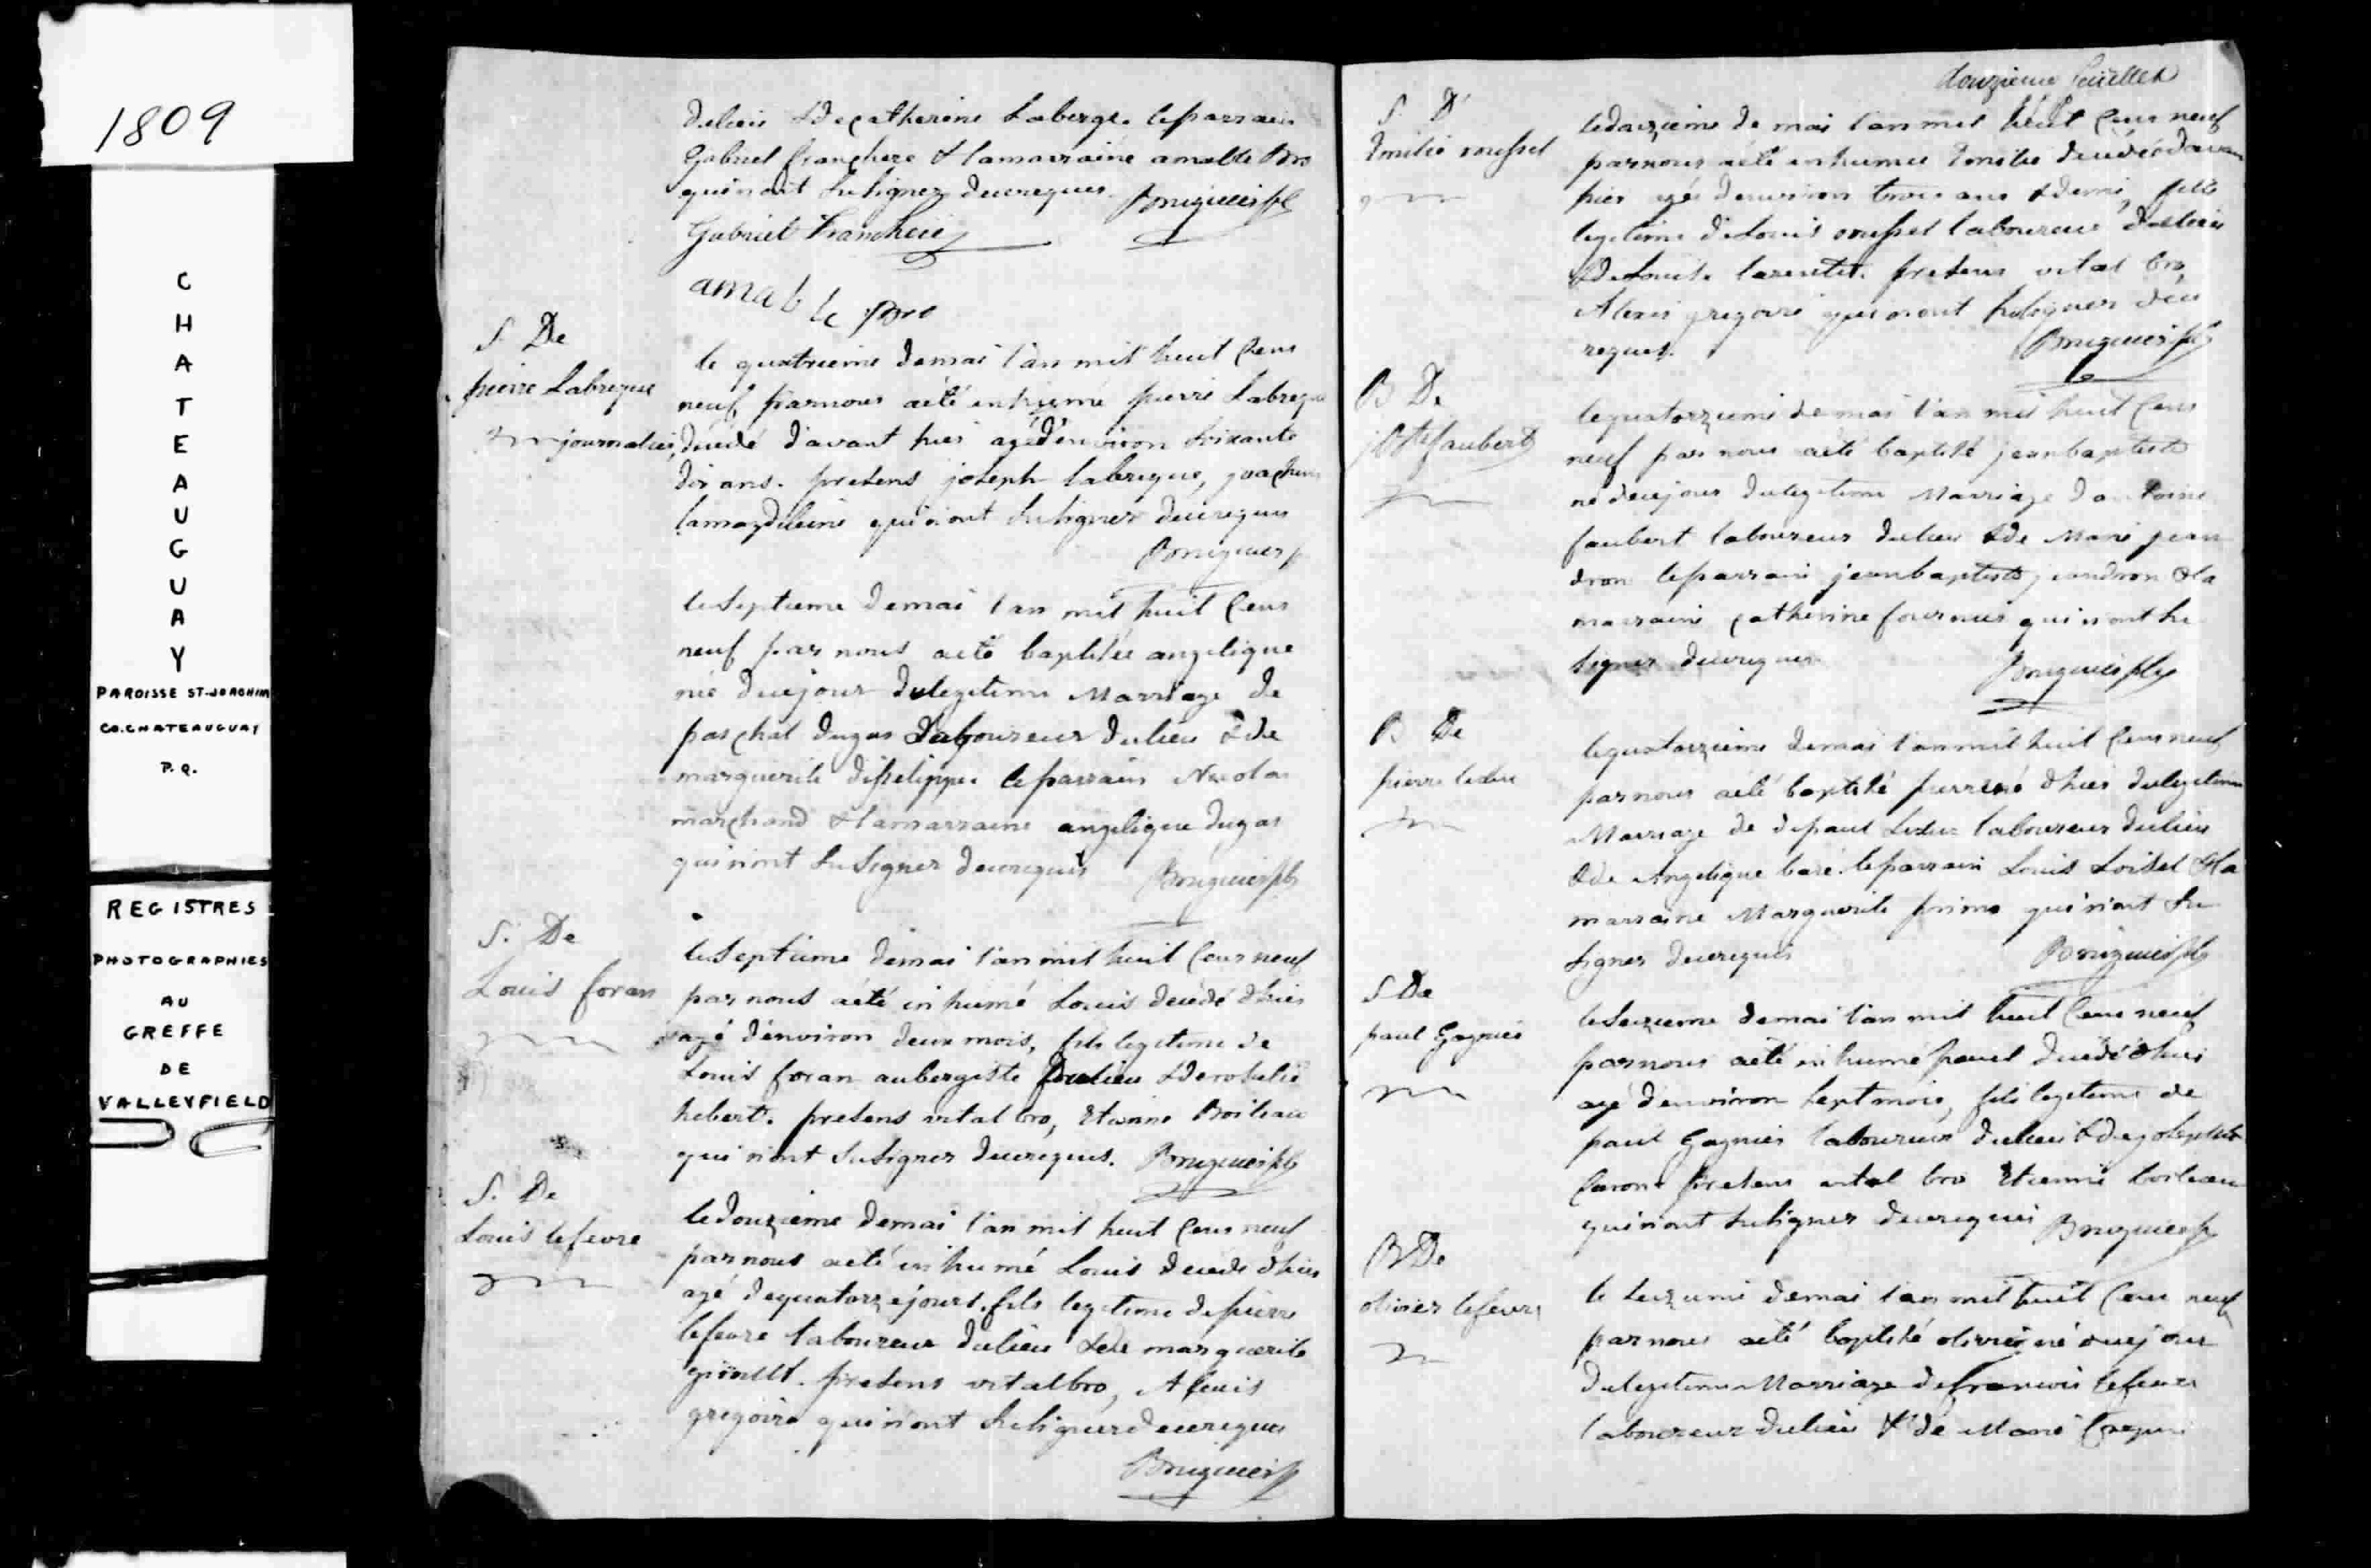 1809
CHATEAUGUAY
PAROISSE ST-JOACHIM
CO. CHATEAUGUAY
P.Q.
REGISTRES
PHOTOGRAPHIES
AU
GREFFE
DE
VALLEYFIELD
dulieu & de catherine Laberge. le parrain
Gabriel franchere & la marraine amable Bro
qui n'ont su signer de ce requis. Bruguier ptre
Gabriel Franchere
amable Bro
S. De
pierre Labreque
le quatrieme de mai l'an mil huit cens
neuf par nous a été inhumé pierre Labreque
journalier, décédé d'avant hier agé d'environ soixante
dix ans. presens joseph labreque, joachim
lamagdeleine qui n'ont su signer de ce requis
Bruguier p
le septieme de mai l'an mil huit cens
neuf par nous a été baptisée angelique
née de ce jour du legitime Marriage de
paschal dugas Laboureur du lieu & de
marguerite
le parrain Nicolas
marchand & la marraine angelique dugas
qui n'ont su signer de ce requis Bruguier ptre
S. De
Louis foran
le septieme de mai l'an mil huit cens neuf
par nous a été inhumé Louis décédé d'hier
agé d'environ deux mois, fils legitime de
Louis foran aubergiste du lieu & de rosalie
hebert. presens vital bro, Etienne Boileau
qui n'ont su signer de ce requis. Bruguier ptre
S. De
Louis lefevre
le douzieme de mai l'an mil huit cens neuf
par nous a été inhumé Louis décédé d'hier
agé de quatorze jours. fils legitime de pierre
lefevre laboureur du lieu & de marguerite
presens vital bro, Alexis
gregoire qui n'ont su signer de ce requis
Bruguier p
douzieme feuillet
S. D'
Emilie roussel
le douzieme de mai l'an mil huit cens neuf
par nous a été inhumée Emilie décédée d'avan
hier agée d'environ trois ans & demi, fille
legitime de Louis roussel laboureur du lieu
& de Louise presens vital bro,
Alexis gregoire qui n'ont su signer de ce
requis. Bruguier ptre
B De
j Bte faubert
le quatorzieme de mai l'an mil huit cens
neuf par nous a été baptisé jean baptiste
né de ce jour du legitime Marriage d'antoine
faubert laboureur du lieu & de Marie jean
dron le parrain jean baptiste jeandron & la
marraine catherine fournier qui n'ont su
signer de ce requis. Bruguier ptre
B De
pierre leduc
le quatorzieme de mai l'an mil huit cens neuf
par nous a été baptisé pierre né d'hier du legitime
Marriage de de paul Leduc laboureur du lieu
& de Angelique baré. le parrain Louis Loisel & la
marraine Marguerite primo qui n'ont su
signer de ce requis Bruguier ptre
S De
paul Gagnier
le seizieme de mai l'an mil huit cens neuf
par nous a été inhumé paul décédé d'hier
agé d'environ sept mois, fils legitime de
paul Gagnier laboureur du lieu & de josephte
Caron. presens vital bro Etienne boileau
qui n'ont su signer de ce requis Bruguier p
B De
olivier lefevre
le seizieme de mai l'an mil huit cens neuf
par nous a été baptisé olivier né de ce jour
du legitime Marriage de francois lefevre
laboureur du lieu & de Marie